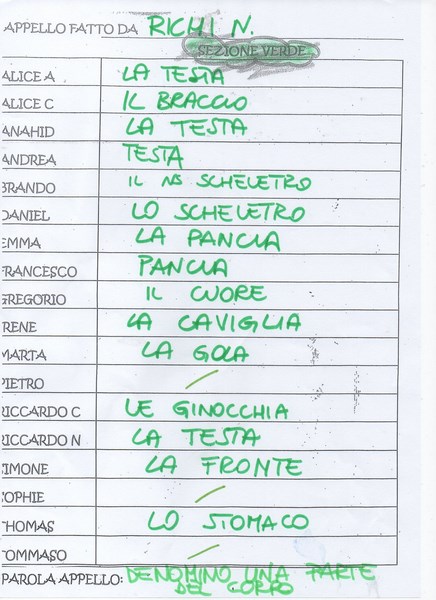 APPELLO FATTO DA RICHI N.
SEZIONE VERDE
ALICE A LA TESTA
ALICE C IL BRACCIO
ANAHID LA TESTA
ANDREA TESTA
BRANDO IL NS SCHELETRO
DANIEL LO SCHELETRO
EMMA LA PANCIA
FRANCESCO PANCIA
GREGORIO IL CUORE
IRENE LA CAVIGLIA
MARTA LA GOLA
PIETRO /
RICCARDO C LE GINOCCHIA
RICCARDO N LA TESTA
SIMONE LA FRONTE
SOPHIE /
THOMAS LO STOMACO
TOMMASO /
PAROLA APPELLO: DENOMINO UNA PARTE
DEL CORPO